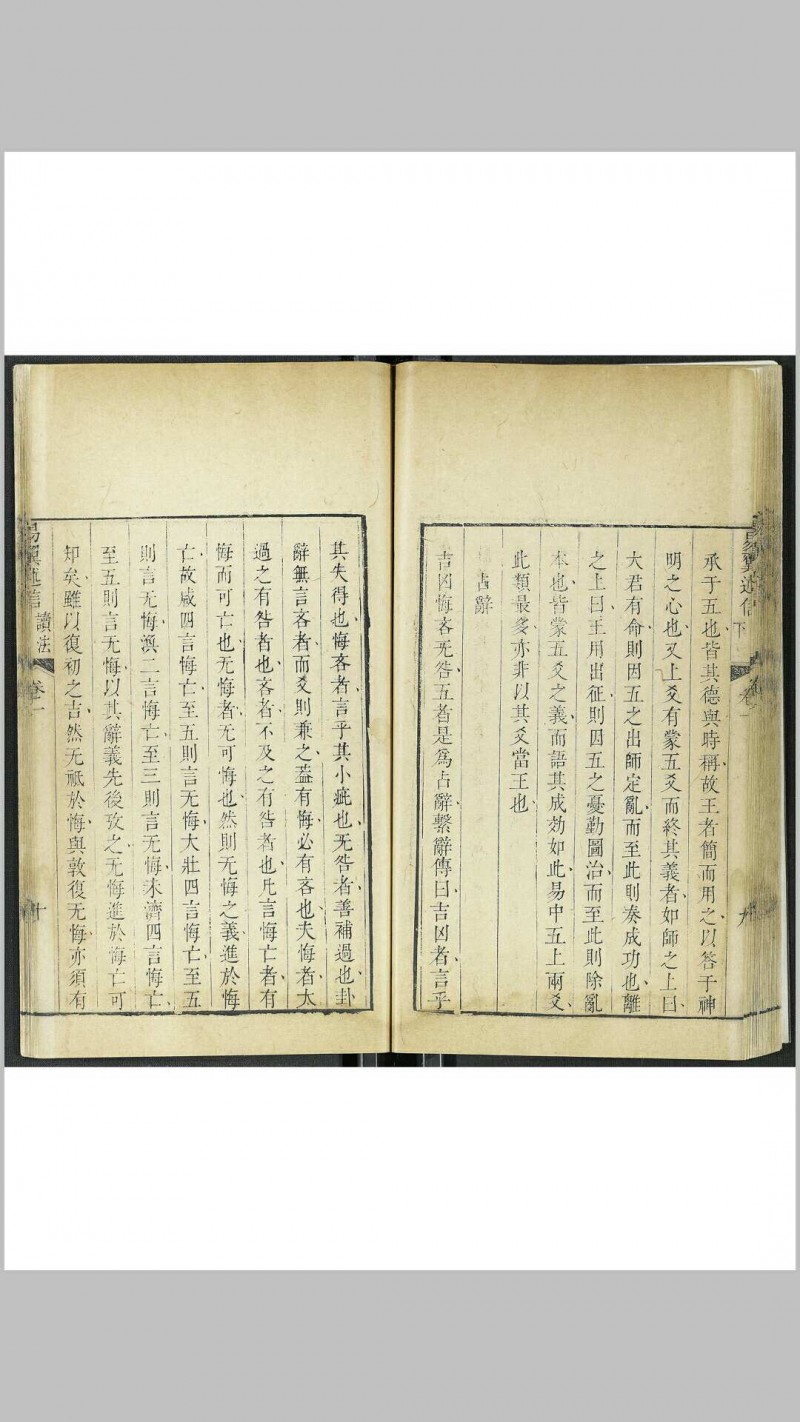 承于五也皆其德與時稱故王者簡而用之以答于神
明之心也又上爻有蒙五爻而終其義者如師之上曰
大君有命則因五之出師定亂而至此則奏成功也離
之上曰王用出征則因五之憂勤圖治而至此則除亂
本也皆蒙五爻之義而語其成効如此易中五上兩爻
此類最多亦非以其爻當王也
占辭
吉凶悔吝无咎五者是為占辭繫辭傳曰吉凶者言乎
其失得也悔吝者言乎其小疵也无咎者善補過也卦
辭無言吝者而爻則兼之葢有悔必有吝也夫悔者太
過之有咎者也吝者不及之有咎者也凡言悔亡者有
悔而可亡也无悔者无可悔也然則无悔之義進於悔
亡故咸四言悔亡至五則言无悔大壯四言悔亡至五
則言无悔渙二言悔亡至三則言无悔未濟四言悔亡
至五則言无悔以其辭義先後攷之无悔進於悔亡可
知矣雖以復初之吉然无祇於悔與敦復无悔亦須有
易翼述信 讀法 卷一 十